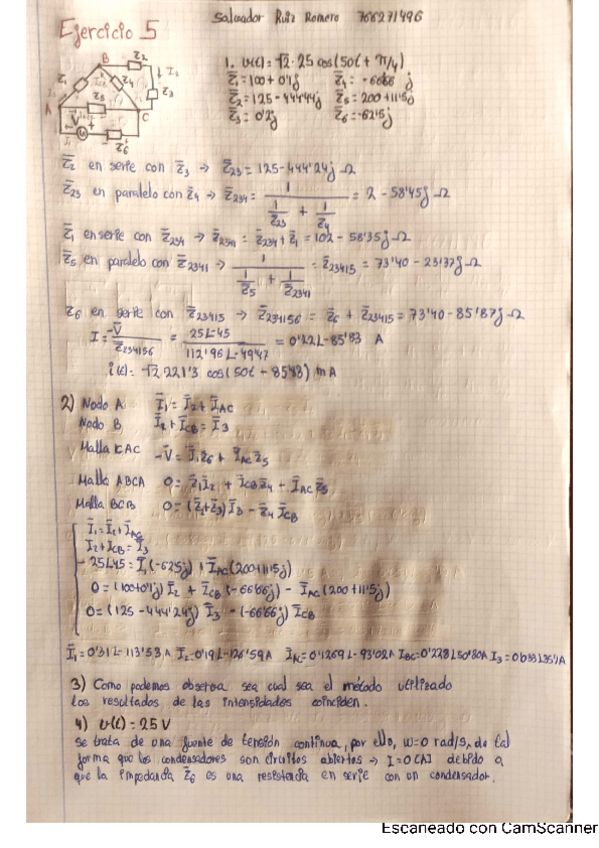 Salvador Ruiz Romero 766271496
Ejercicio 5
1. v(t) = √2 · 25 cos(50t + π/4)
Z̄1 = 100 + 0'1j Z̄4 = -66'66 j
Z̄2 = 125 - 444'44j Z̄5 = 200 + 11'5j
Z̄3 = 0'2j Z̄6 = -62'5j
Z̄2 en serie con Z̄3 → Z̄23 = 125 - 444'24j Ω
Z̄23 en paralelo con Z̄4 → Z̄234 = 1 / (1/Z̄23 + 1/Z̄4) = 2 - 58'45j Ω
Z̄1 en serie con Z̄234 → Z̄2341 = Z̄234 + Z̄1 = 102 - 58'35j Ω
Z̄5 en paralelo con Z̄2341 → 1 / (1/Z̄5 + 1/Z̄2341) = Z̄23415 = 73'40 - 23'37j Ω
Z6 en serie con Z̄23415 → Z̄234156 = Z̄6 + Z̄23415 = 73'40 - 85'87j Ω
I = -V̄ / Z̄234156 = 25∠-45 / 112'96∠-49'47 = 0'22∠-85'83 A
i(t) = √2 221'3 cos(50t - 85'83) mA
2) Nodo A Ī1 = Ī2 + ĪAC
Nodo B Ī2 + ĪCB = Ī3
Malla CAC -V̄ = Ī1Z̄6 + ĪACZ̄5
Malla ABCA 0 = Z̄1Ī2 + ĪCBZ̄4 - ĪACZ̄5
Malla BCB 0 = (Z̄2+Z̄3)Ī3 - Z̄4ĪCB
Ī1 = Ī2 + ĪAC
Ī2 + ĪCB = Ī3
-25∠45 = Ī1(-62'5j) + ĪAC(200+11'5j)
0 = (100+0'1j) Ī2 + ĪCB(-66'66j) - ĪAC(200+11'5j)
0 = (125 - 444'24j) Ī3 - (-66'66j) ĪCB
Ī1 = 0'31∠-113'53A Ī2 = 0'19∠-126'59A ĪAC = 0'1269∠-93'02A IBC = 0'228∠50'80A I3
3) Como podemos observa sea cual sea el método utilizado
los resultados de las intensidades coinciden.
4) v(t) = 25 V
Se trata de una fuente de tensión continua, por ello, w=0 rad/s, de tal
forma que los condensadores son circuitos abiertos → I = 0 [A] debido a
que la impedancia Z̄6 es una resistencia en serie con un condensador.
Escaneado con CamScanner